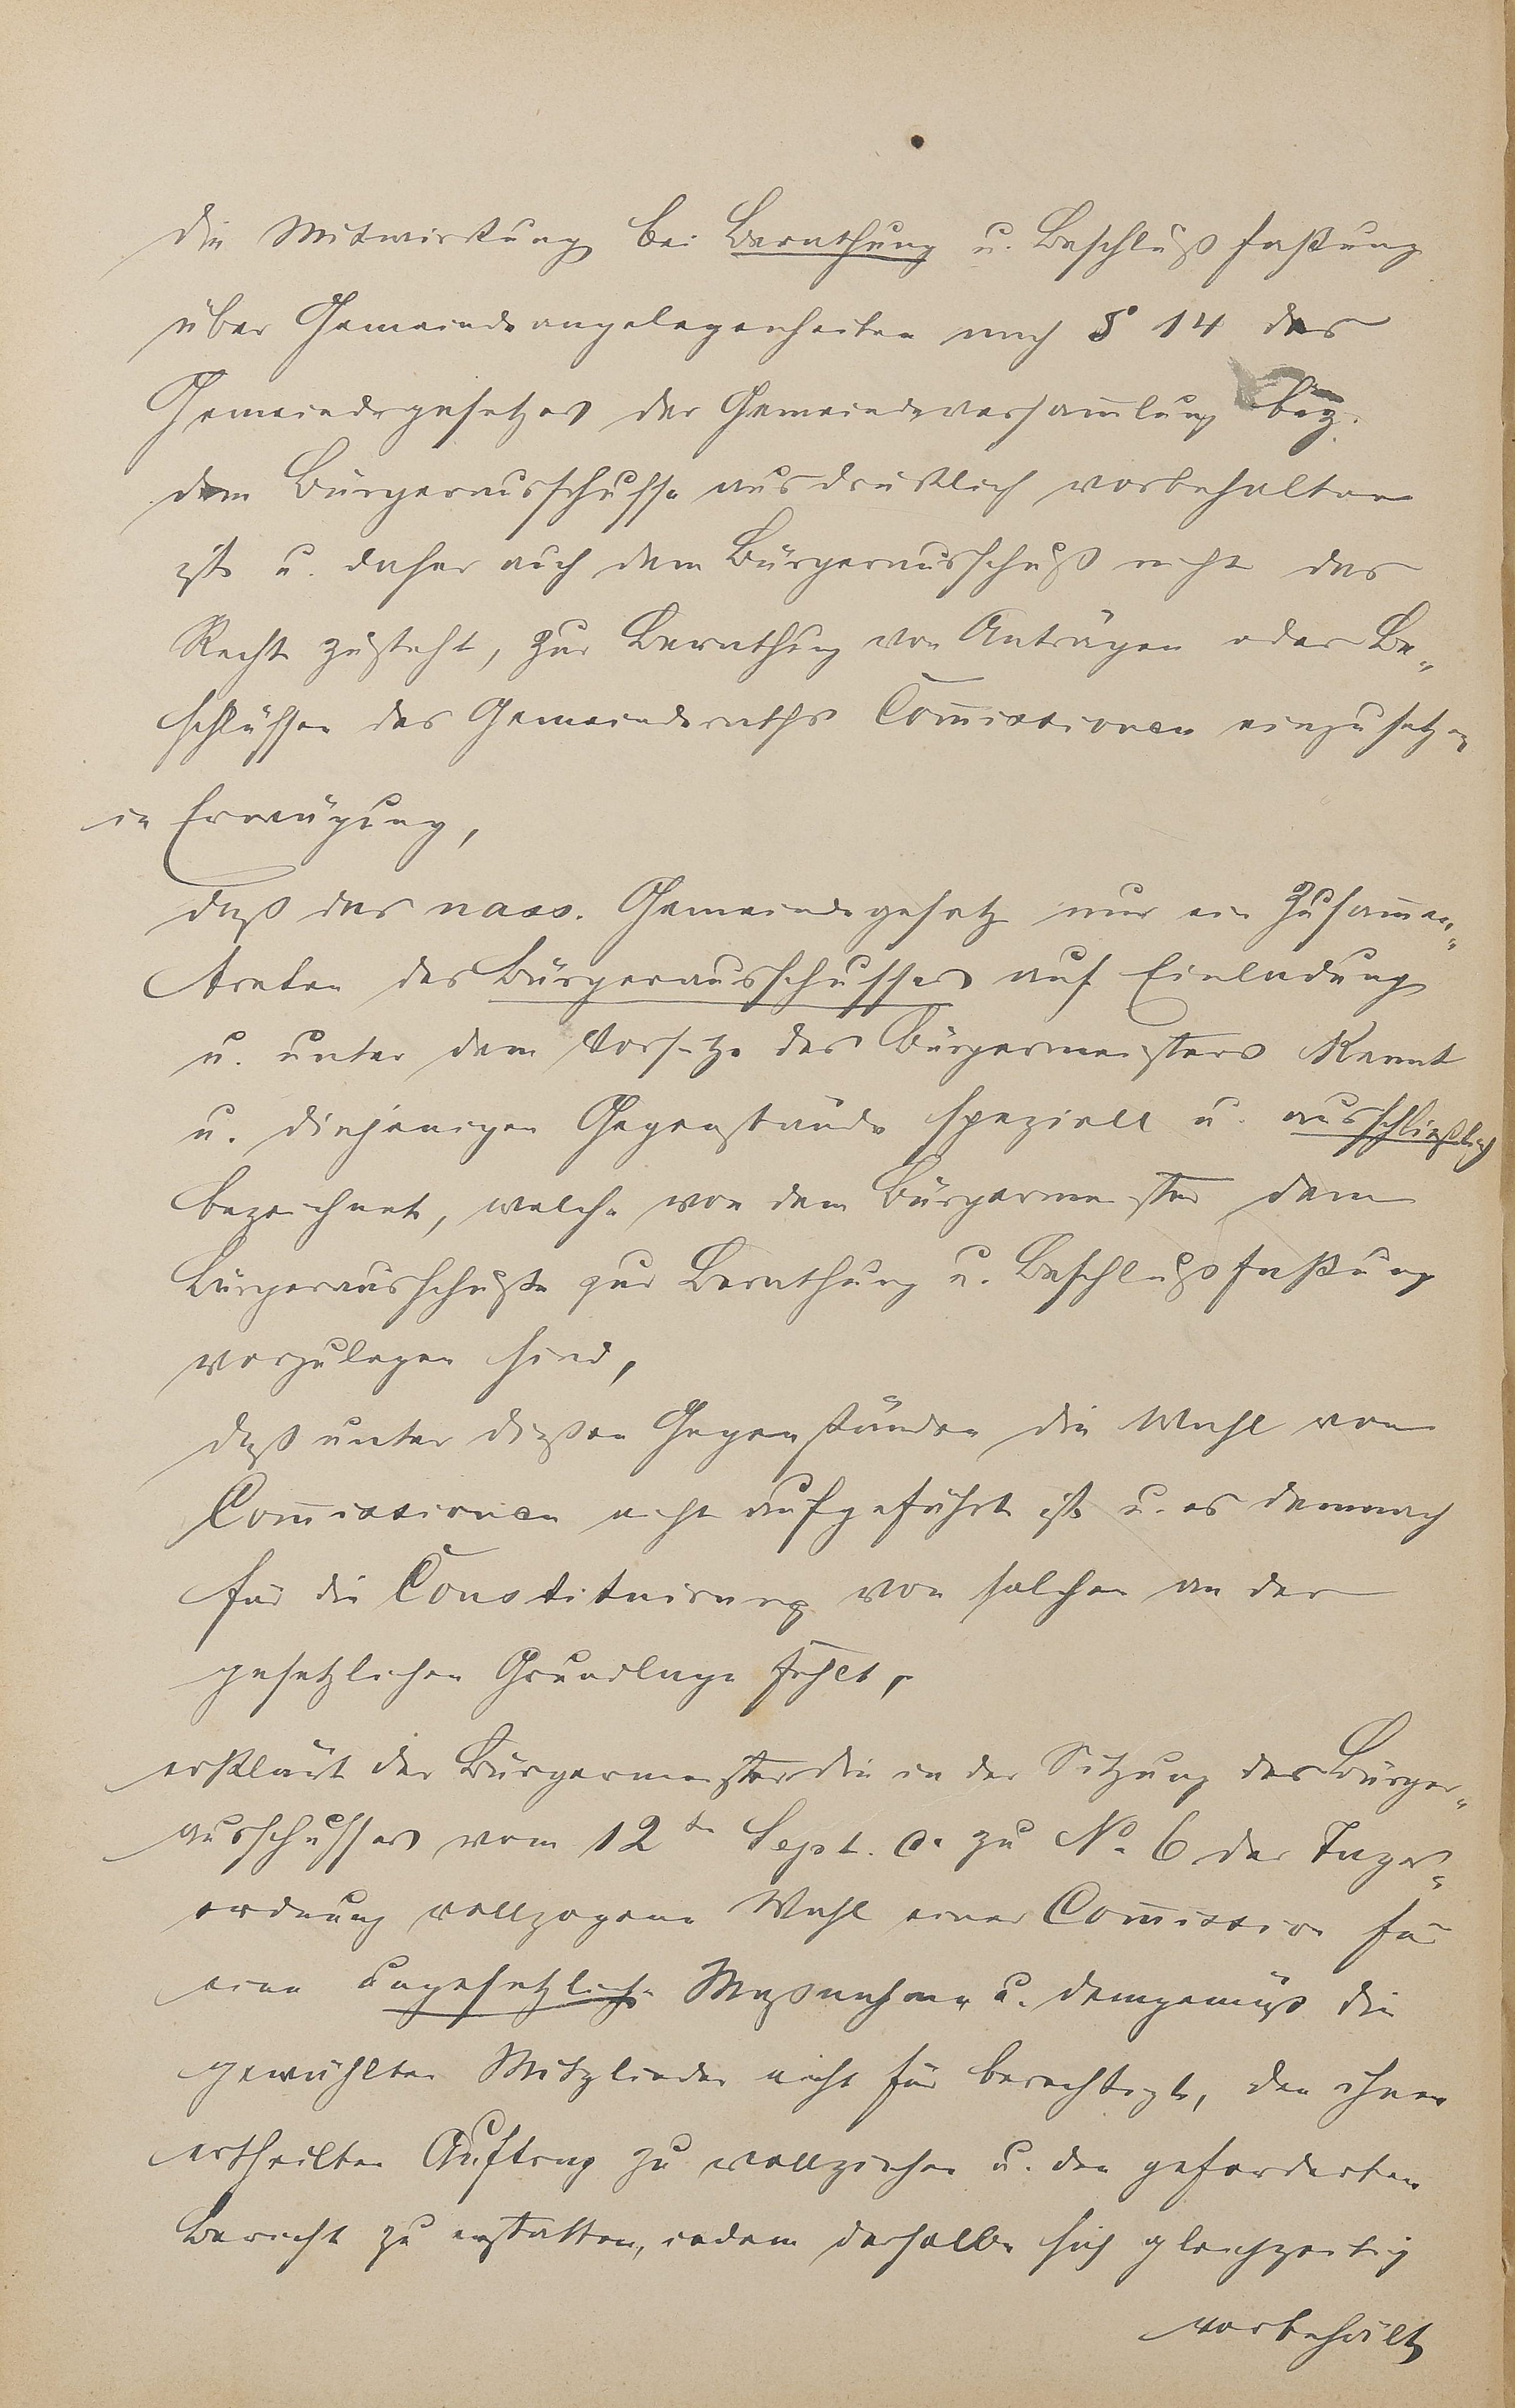 die Mitwirkung bei Berathung u. Beschlußfaßung
über Gemeindeangelegenheiten nach § 14 des
Gemeindegesetzes der Gemeindeversam̅lung bez.
dem Bürgerausschusse ausdrüklich vorbehalten
ist u. daher auch dem Bürgerausschuß nicht das
Recht zusteht, zur Berathung von Anträgen oder Be„
schlüssen des Gemeinderaths Com̅issionen einzusetzen
in Erwägung,
daß das nass. Gemeindegesetz nur ein Zusam̅en„
treten des Bürgerausschusses auf Einladung
u. unter dem Vorsitze des Bürgermeisters kennt
u. diejenigen Gegenstände speziell u. ausschließlich
bezeichnet, welche von dem Bürgermeister dem
Bürgerausschuße zur Berathung u. Beschlußfaßung
vorzulegen sind,
daß unter dießen Gegenständen die Wahl von
Com̅issionen nicht aufgeführt ist u. es demnach
für die Constituirung von solchen an der
gesetzlichen Grundlage fehlt,
erklärt der Bürgermeister die in der Sitzung des Bürger„
ausschusses vom 12ten Sept. c. zu No. 6 der Tages„
ordnung vollzogene Wahl einer Com̅ission für
eine ungesetzliche Maßnahme u. demgemäß die
gewählten Mitglieder nicht für berechtigt, den ihnen
ertheilten Auftrag zu vollziehen u. den geforderten
Bericht zu erstatten, indem derselbe sich gleichzeitig
vorbehält